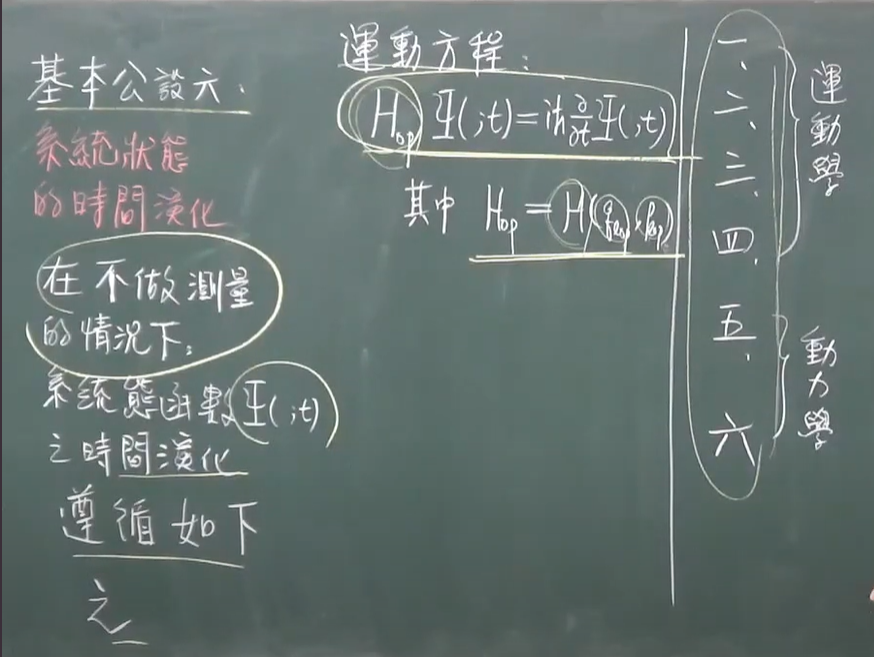 基本公設六：
系統狀態
的時間演化
在不做測量
的情況下：
系統態函數Ψ( ;t)
之時間演化
遵循如下
之
運動方程：
H_op Ψ( ;t) = iħ ∂/∂t Ψ( ;t)
其中 H_op = H(q_op, p_op)
一、
二、
三、
四、
五、
六
運動學
動力學